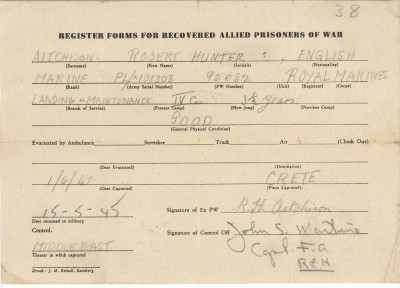 38
REGISTER FORMS FOR RECOVERED ALLIED PRISONERS OF WAR
AITCHISON ROBERT HUNTER ENGLISH
(Surname) (First Name) (Initials) (Nationality)
MARINE PLY/101308 95682 ROYAL MARINES
(Rank) (Army Serial Number) (PW Number) (Unit) (Regiment) (Corps)
LANDING & MAINTENANCE IV C 3¾ Years
(Branch of Service) (Present Camp) (How Long) (Previous Camp)
GOOD
(General Physical Condition)
Evacuated by Ambulance Stretcher Truck Air (Check One)
(Date Evacuated) (Destination)
1/6/41 CRETE
(Date Captured) (Place Captured)
15-5-45 Signature of Ex PW R.H. Aitchison
Date returned to military
Control. Signature of Control Off John S. Martino
MIDDLE EAST Capt. F.A
Theater in which captured
Druck: J. M. Reindl, Bamberg